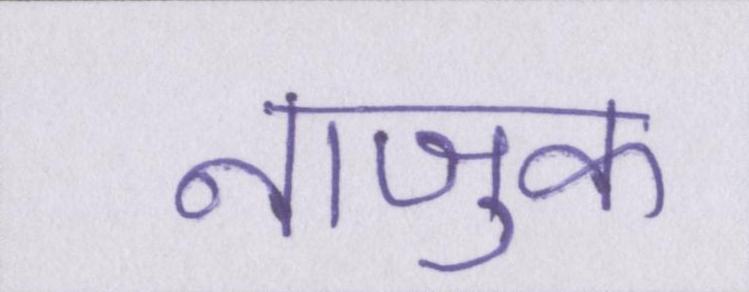 नाजुक